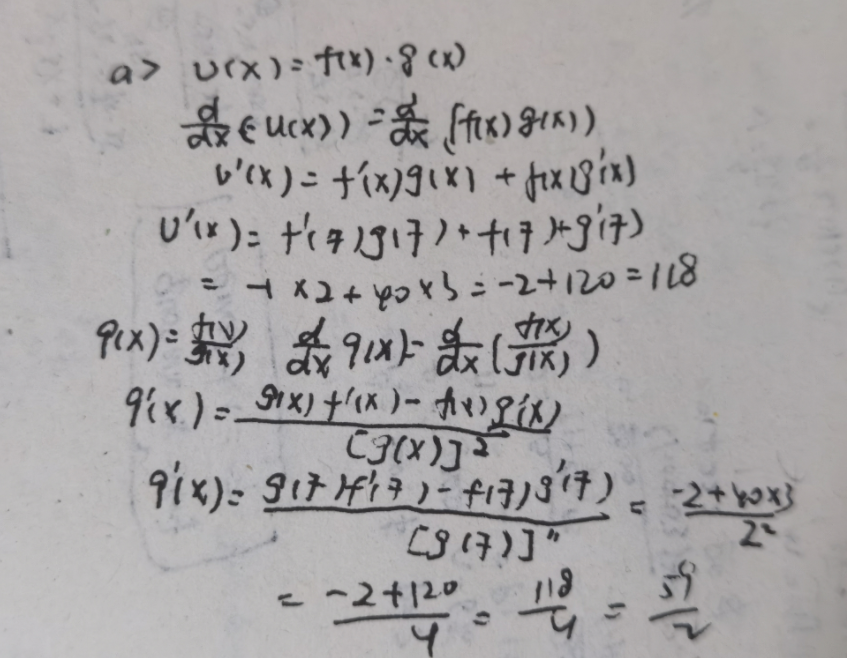 a> U(x) = f(x) · g(x)
d/dx (U(x)) = d/dx (f(x) g(x))
U'(x) = f'(x) g(x) + f(x) g'(x)
U'(x) = f'(7) g(7) + f(7) + g'(7)
= -1 × 2 + 40 × 3 = -2 + 120 = 118
q(x) = f(x)/g(x) d/dx q(x) = d/dx (f(x)/g(x))
q'(x) = g(x) f'(x) - f(x) g'(x) / [g(x)]²
q'(x) = g(7) f'(7) - f(7) g'(7) / [g(7)]" = -2 + 40×3 / 2²
= -2 + 120 / 4 = 118/4 = 59/2